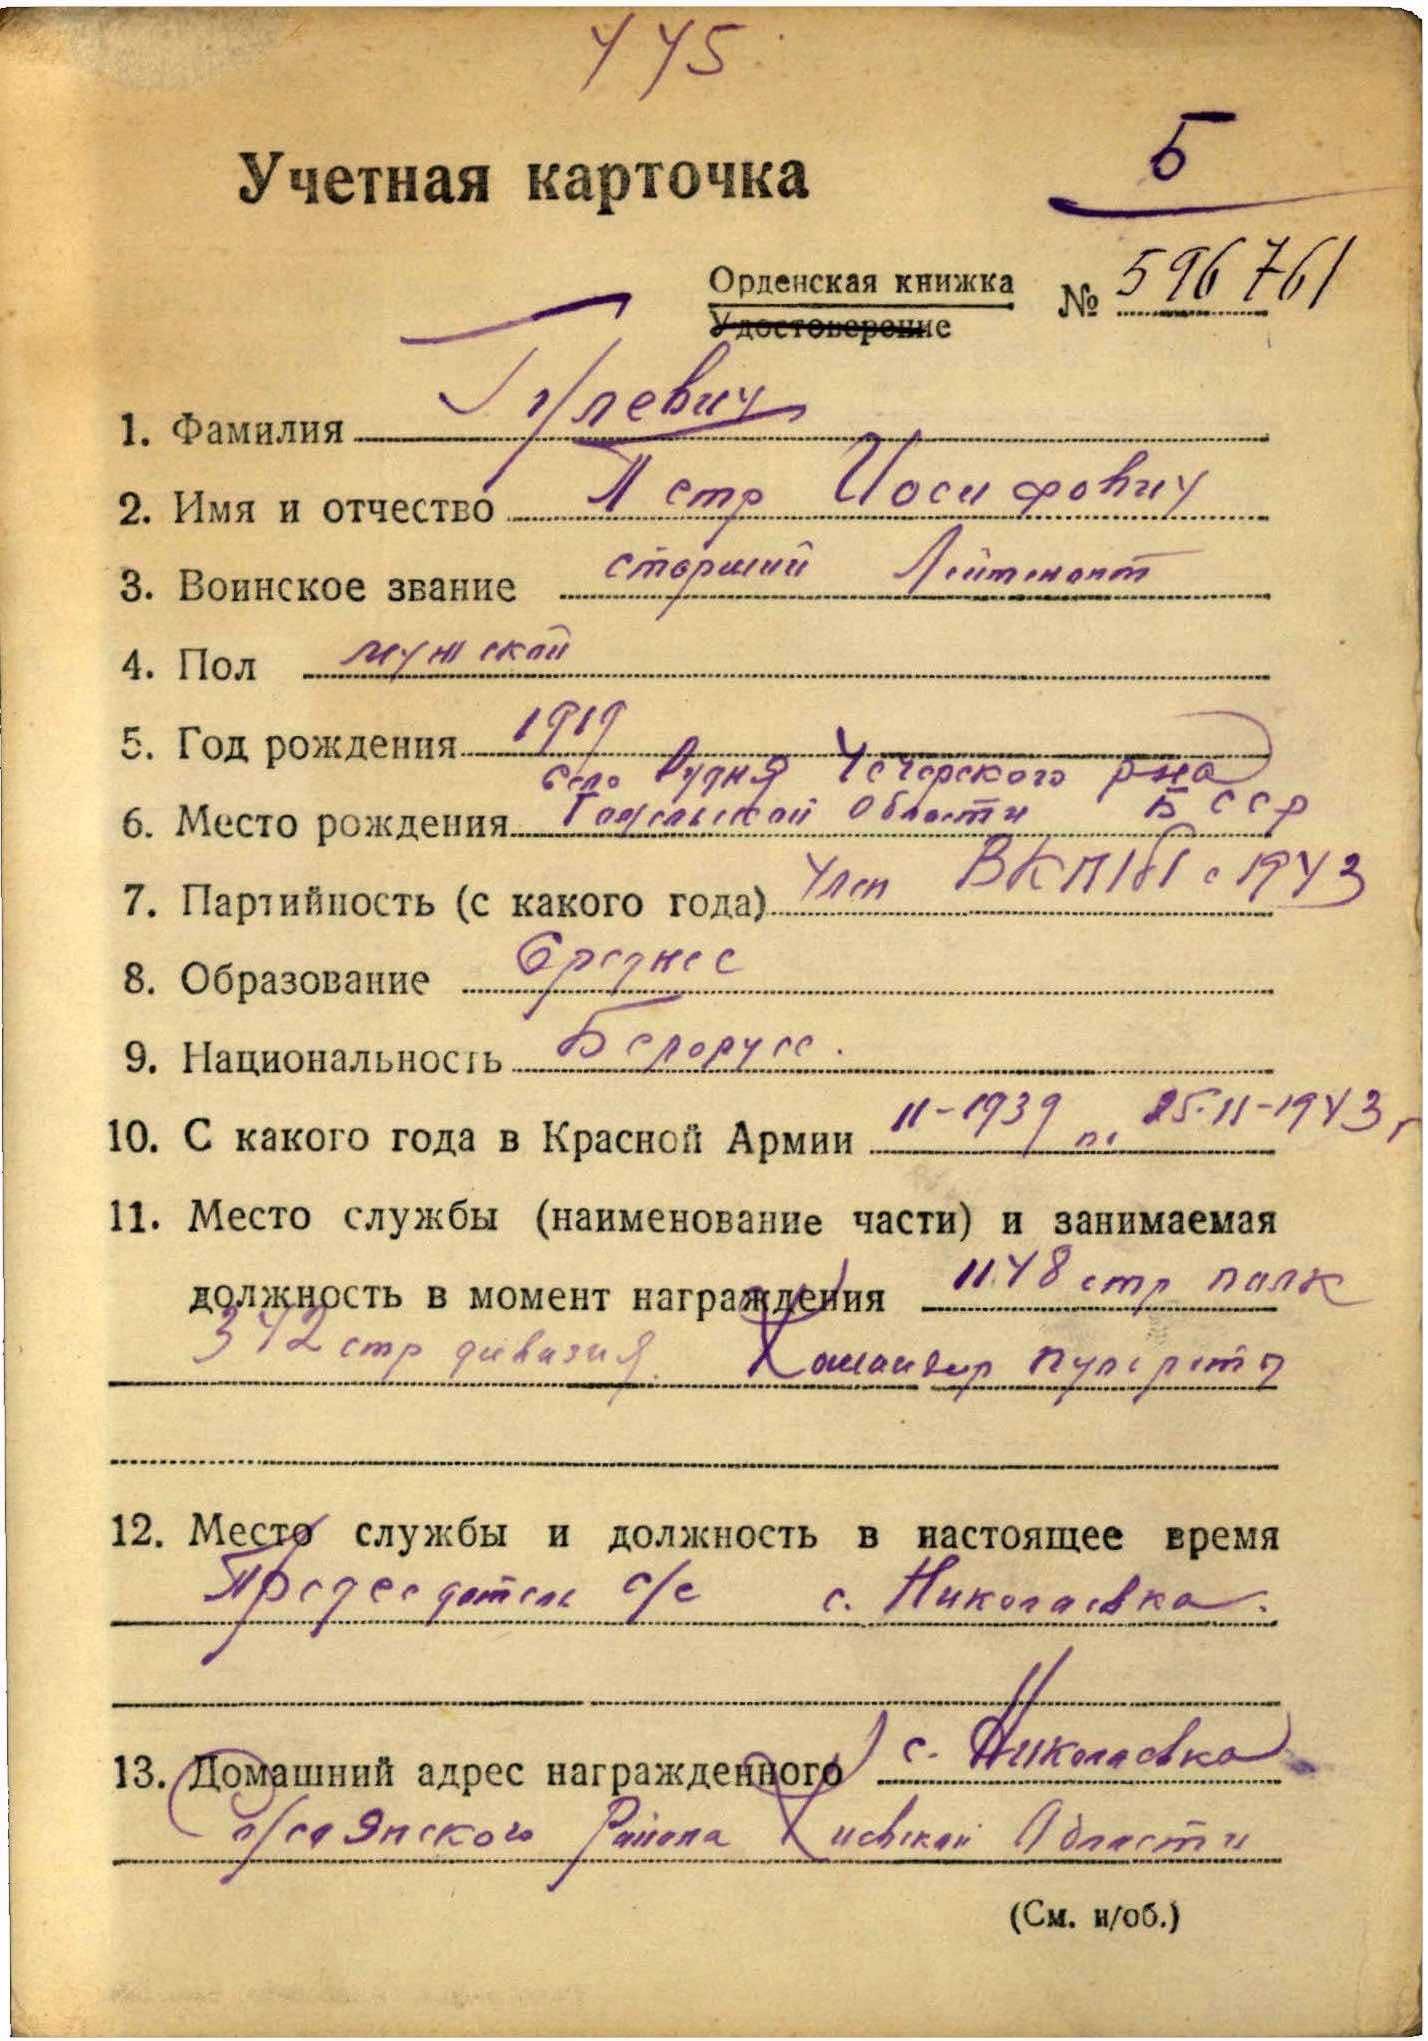 445
Учетная карточка
Б
Орденская книжка № 596761
Удостоверение
1. Фамилия Гулевич
2. Имя и отчество Петр Иосифович
3. Воинское звание старший Лейтенант
4. Пол мужской
5. Год рождения 1919
село Рудня Чечерского р-на
6. Место рождения Гомельской Области БССР
7. Партийность (с какого года) Член ВКП(б) с 1943
8. Образование Среднее
9. Национальность Белорусс.
10. С какого года в Красной Армии 11-1939 по 25.11-1943 г
11. Место службы (наименование части) и занимаемая
должность в момент награждения 1148 стр полк
342 стр дивизия. Командир пульроты
12. Место службы и должность в настоящее время
Председатель с/с с. Николаевка.
13. Домашний адрес награжденного с. Николаевка
Района Киевской Области
(См. н/об.)